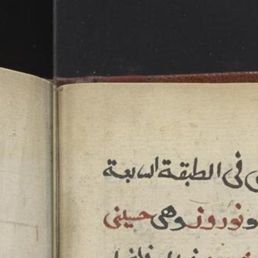 فى الطبقة السابعة
ونوروز وهى حسينى